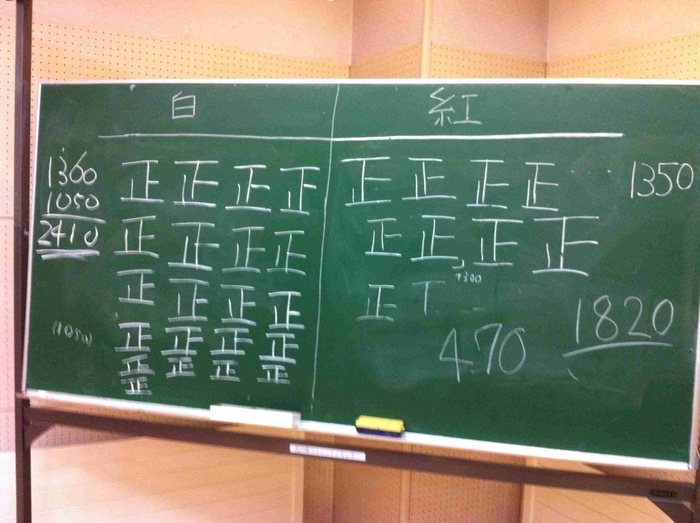 白 紅
1360
1050
2410
(1050)
正 正 正 正
正 正 正 正
正 正 正 正
正 正 正 正
正 正 正 正
正
正 正 正 正
正 正 正 正
正 T
1350
1300
470
1820